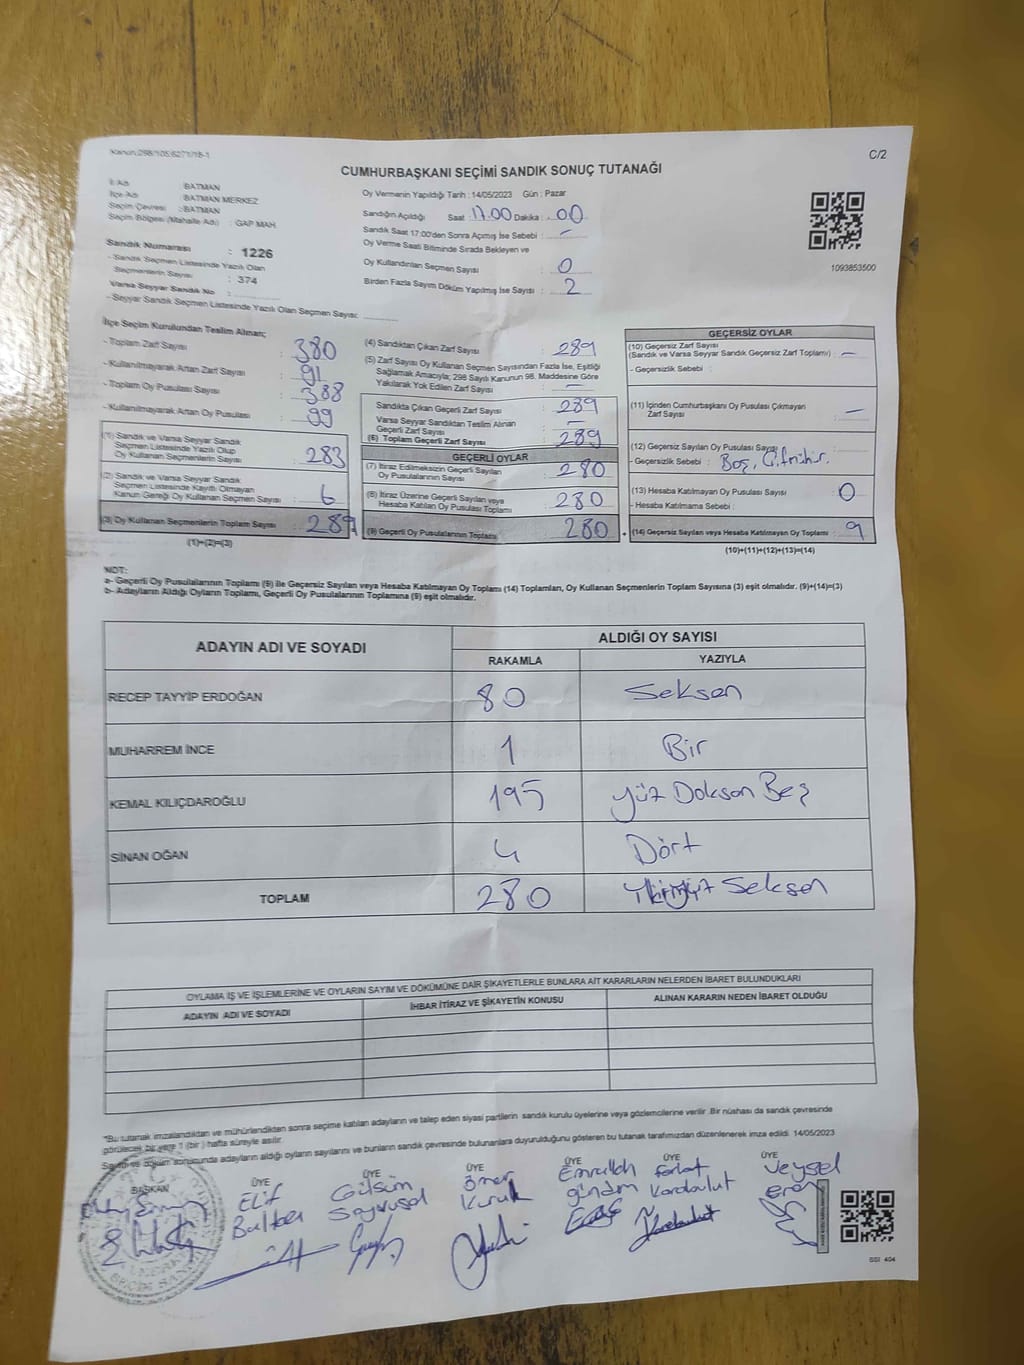 Kanun:298/105,6271/18-1
C/2
CUMHURBAŞKANI SEÇİMİ SANDIK SONUÇ TUTANAĞI
İl Adı : BATMAN
İlçe Adı : BATMAN MERKEZ
Seçim Çevresi : BATMAN
Seçim Bölgesi (Mahalle Adı) : GAP MAH.
Sandık Numarası : 1226
- Sandık Seçmen Listesinde Yazılı Olan
Seçmenlerin Sayısı : 374
Varsa Seyyar Sandık No :
- Seyyar Sandık Seçmen Listesinde Yazılı Olan Seçmen Sayısı:
Oy Vermenin Yapıldığı Tarih : 14/05/2023 Gün : Pazar
Sandığın Açıldığı Saat 17.00 Dakika : 00
Sandık Saat 17:00'den Sonra Açımış İse Sebebi : -
Oy Verme Saati Bitiminde Sırada Bekleyen ve
Oy Kullandırılan Seçmen Sayısı : 0
Birden Fazla Sayım Döküm Yapılmış İse Sayısı : 2
1093853500
İlçe Seçim Kurulundan Teslim Alınan;
- Toplam Zarf Sayısı : 380
- Kullanılmayarak Artan Zarf Sayısı : 91
- Toplam Oy Pusulası Sayısı : 388
- Kullanılmayarak Artan Oy Pusulası : 99
(1) Sandık ve Varsa Seyyar Sandık
Seçmen Listesinde Yazılı Olup
Oy Kullanan Seçmenlerin Sayısı : 283
(2) Sandık ve Varsa Seyyar Sandık
Seçmen Listesinde Kayıtlı Olmayan
Kanun Gereği Oy Kullanan Seçmen Sayısı : 6
(3) Oy Kullanan Seçmenlerin Toplam Sayısı : 289
(1)+(2)=(3)
(4) Sandıktan Çıkan Zarf Sayısı : 289
(5) Zarf Sayısı Oy Kullanan Seçmen Sayısından Fazla İse, Eşitliği
Sağlamak Amacıyla; 298 Sayılı Kanunun 98. Maddesine Göre
Yakılarak Yok Edilen Zarf Sayısı : -
Sandıkta Çıkan Geçerli Zarf Sayısı : 289
Varsa Seyyar Sandıktan Teslim Alınan
Geçerli Zarf Sayısı : -
(6) Toplam Geçerli Zarf Sayısı : 289
GEÇERLİ OYLAR
(7) İtiraz Edilmeksizin Geçerli Sayılan
Oy Pusulalarının Sayısı : 280
(8) İtiraz Üzerine Geçerli Sayılan veya
Hesaba Katılan Oy Pusulası Toplamı : 280
(9) Geçerli Oy Pusulalarının Toplamı : 280
GEÇERSİZ OYLAR
(10) Geçersiz Zarf Sayısı
(Sandık ve Varsa Seyyar Sandık Geçersiz Zarf Toplamı) : -
- Geçersizlik Sebebi :
(11) İçinden Cumhurbaşkanı Oy Pusulası Çıkmayan
Zarf Sayısı : -
(12) Geçersiz Sayılan Oy Pusulası Sayısı
- Geçersizlik Sebebi : Boş, Çift mühür.
(13) Hesaba Katılmayan Oy Pusulası Sayısı : 0
- Hesaba Katılmama Sebebi :
(14) Geçersiz Sayılan veya Hesaba Katılmayan Oy Toplamı : 9
(10)+(11)+(12)+(13)=(14)
NOT:
a- Geçerli Oy Pusulalarının Toplamı (9) ile Geçersiz Sayılan veya Hesaba Katılmayan Oy Toplamı (14) Toplamları, Oy Kullanan Seçmenlerin Toplam Sayısına (3) eşit olmalıdır. (9)+(14)=(3)
b- Adayların Aldığı Oyların Toplamı, Geçerli Oy Pusulalarının Toplamına (9) eşit olmalıdır.
ADAYIN ADI VE SOYADI ALDIĞI OY SAYISI
RAKAMLA YAZIYLA
RECEP TAYYİP ERDOĞAN 80 Seksen
MUHARREM İNCE 1 Bir
KEMAL KILIÇDAROĞLU 195 Yüz Doksan Beş
SİNAN OĞAN 4 Dört
TOPLAM 280 İkiyüz Seksen
OYLAMA İŞ VE İŞLEMLERİNE VE OYLARIN SAYIM VE DÖKÜMÜNE DAİR ŞİKAYETLERLE BUNLARA AİT KARARLARIN NELERDEN İBARET BULUNDUKLARI
ADAYIN ADI VE SOYADI İHBAR İTİRAZ VE ŞİKAYETİN KONUSU ALINAN KARARIN NEDEN İBARET OLDUĞU
"Bu tutanak imzalandıktan ve mühürlendikten sonra seçime katılan adayların ve talep eden siyasi partilerin sandık kurulu üyelerine veya gözlemcilerine verilir. Bir nüshası da sandık çevresinde
görülecek bir yere 1 (bir) hafta süreyle asılır.
Sayım ve döküm sonucunda adayların aldığı oyların sayılarını ve bunların sandık çevresinde bulunanlara duyurulduğunu gösteren bu tutanak tarafımızdan düzenlenerek imza edildi. 14/05/2023
BAŞKAN ÜYE ÜYE ÜYE ÜYE ÜYE ÜYE
Elif Gülsüm Ömer Emrullah Ferhat Veysel
Kuruk Karabulut eren
SSI 404